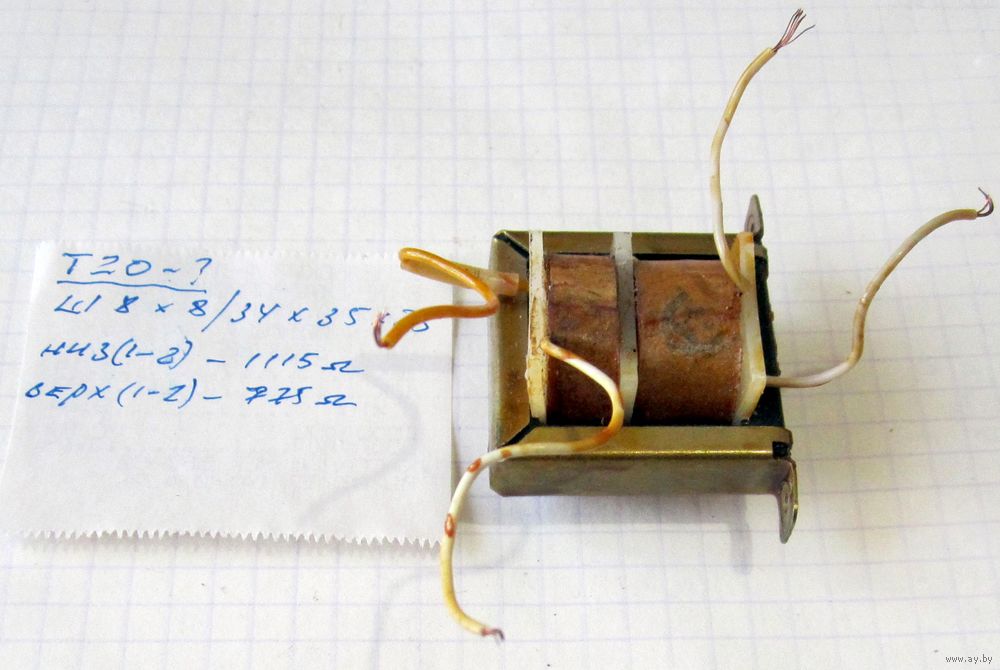 Т20-?
Ш 8 x 8/34 x 35 x
НИЗ(1-2) - 1115 Ω
ВЕРХ(1-2) - 775 Ω
www.ay.by